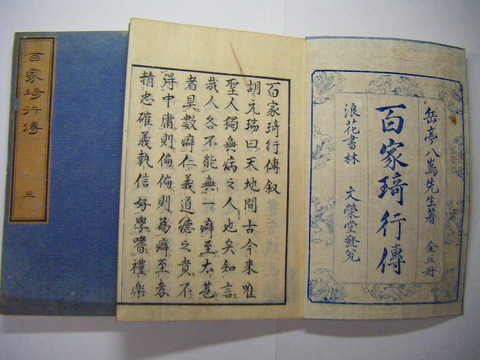 岳亭八嶌先生著 全五冊
百家琦行傳
浪花書林 文榮堂發兌
百家琦行傳叙
胡元瑞曰天地間古今来唯
聖人獨無病之人也矣知言
哉人各不能無一癖至太甚
者具数癖仁義道德之貴不
得中庸則偏偏則為癖至孝
精忠確義執信好學嗜禮樂
百家琦行傳 三